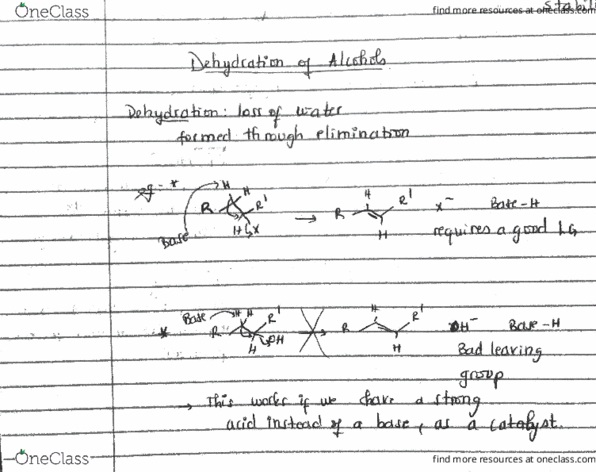 OneClass
find more resources at oneclass.com
Dehydration of Alcohols
Dehydration: loss of water
formed through elimination
H H
R R'
Base
H X
→
H
R R'
H
X⁻ Base-H
requires a good LG
* Base H H
R R'
H OH
H
R R'
H
OH⁻ Base-H
Bad leaving
group
→ This works if we have a strong
acid instead of a base, as a catalyst.
OneClass
find more resources at oneclass.com